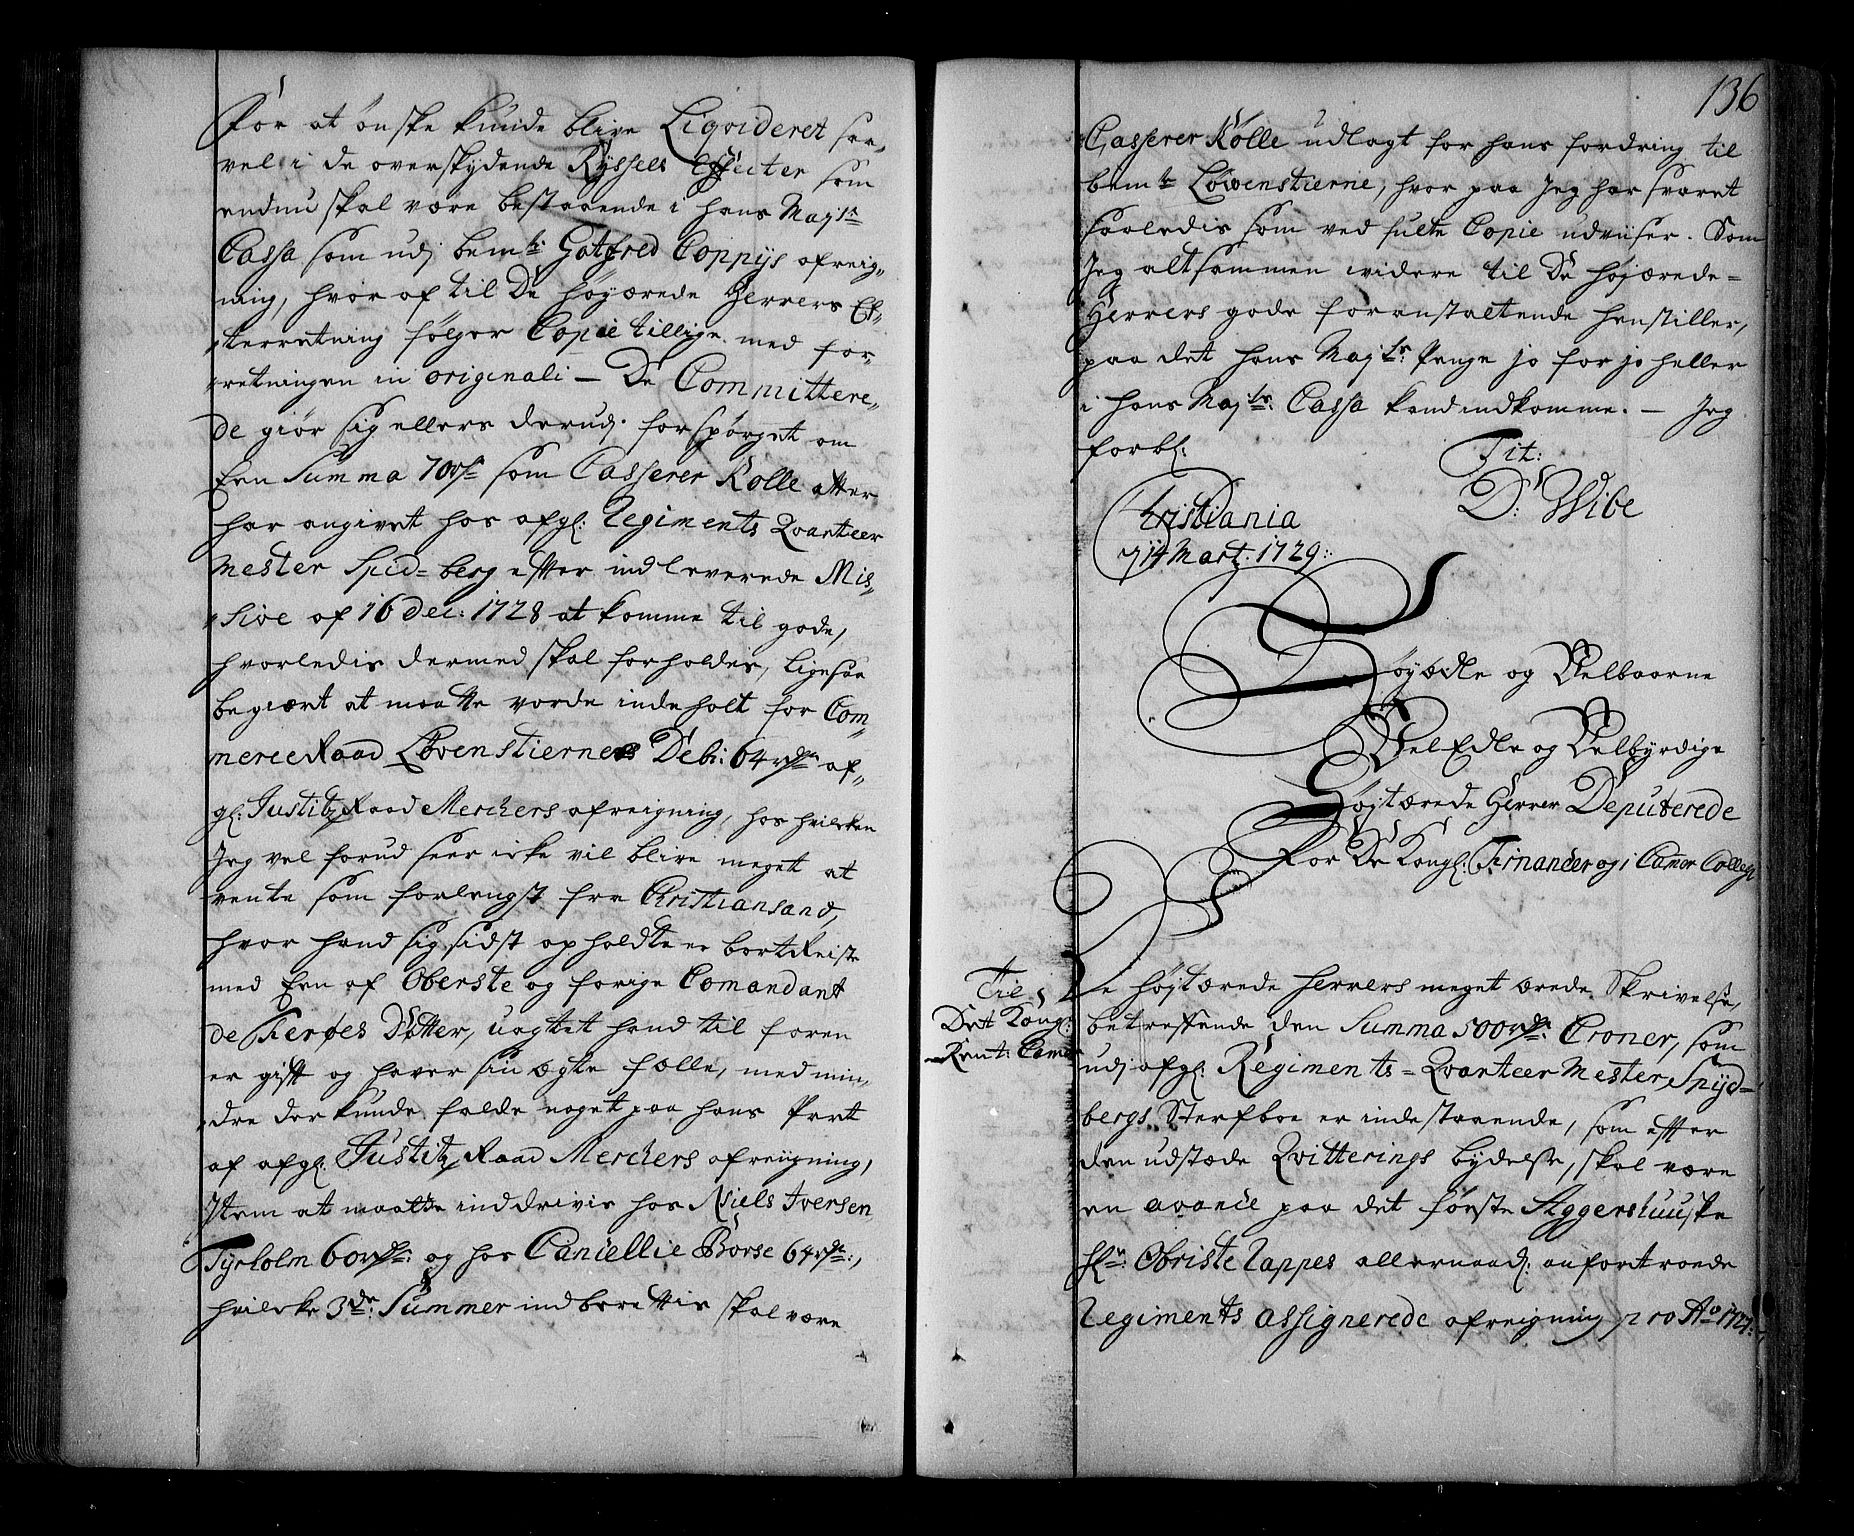 for at ønske kunde blive Liqvideret saa„
vel i de overskydende Ryssels Effecter som
endnu skal være bestaaende i hans Maj:ts
Cassa som udj bem:te Gotfred Coppijs afreig„
ning, hvor af til De høyærede Herrers Ef„
„terretning følger Copie tillige med for„
„retningen in originali – De Committere„
de giør sig ellers derudj forspørget om
Een Summa 70 rd som Casserer Rolle atter
har angivet hos afg: Regiments Qvarteer
Mester Spid=berg efter indleverede Mis„
„sive af 16 Dec: 1728 at komme til gode,
hvorledis dermed skal forholdes, ligesaa
begiært at maatte vorde indeholt for Com„
merce Raad Løvenstiernes Debi: 64 rdr af„
g: Justitz Raad Merckers afreigning, hos hvilcken
Jeg vel forud seer icke vil blive meget at
vente som forlengst fra Christiansand,
hvor hand sig sidst opholdte er bortReist
med Een af Oberste og forige Comandant
de Seroes Dotter, uagtet hand til foren
er gift og haver sin ægte fælle, med min„
„dre der kunde falde noget paa hans Part
af afg: Justitz Raad Merckers afreigning,
Item at maatte inddrivis hos Niels Iversen
Tyrholm 60 rdr: og hos Cancellie Borse 64 rdr:,
hvilcke 3de: Summer indberettis skal være
136
Casserer Rolle udlagt for hans fordring til
bem:te Løvenstierne, hvor paa Jeg har svaret
saaledis som ved fulte Copie udviser. Som
Jeg altsammen widere til De højærede=
Herrers gode foranstaltende henstiller,
paa det hans Maj:ts Penge jo for jo heller
i hans Maj:ts Cassa kand indkomme. – Jeg
forbl:
Tit:
D: Wibe
Christiania
d 14 Mart: 1729:
Høyædle og Velbaarne
VelEdle og Velbyrdige
Højtærede Herrer Deputerede
For De Kongl: Financer og i Camer Collegi
Til
Det Kongl:
Rent: Camer
De højtærede Herrers meget ærede Skrivelse,
betreffende den Summa 500 rdr: Croner, som
udj afg: Regiments=Qvarteer Mester Spijd=
bergs Sterfboe er indestaaende, som efter
den udstæde Qvitterings bydelse, skal være
en avance paa det første Aggershuuske
Hr: Obriste Rappes allernaad: anfortroede
Regiments assignerede afreigning pro Ao 1727: